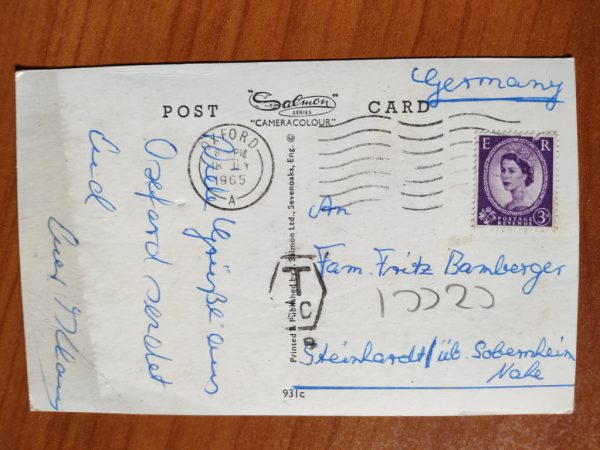 Germany
POST "Salmon" CARD
SERIES
"CAMERACOLOUR"
OXFORD
1965
A
E R
POSTAGE
REVENUE
3D
Printed & Published by J. Salmon Ltd., Sevenoaks, Eng. ©
Viele Grüße aus
Oxford sendet
Euch
Euer
T
C
An
Fam. Fritz Bamberger
Steinhardt / üb. Sobernheim
Nahe
931c